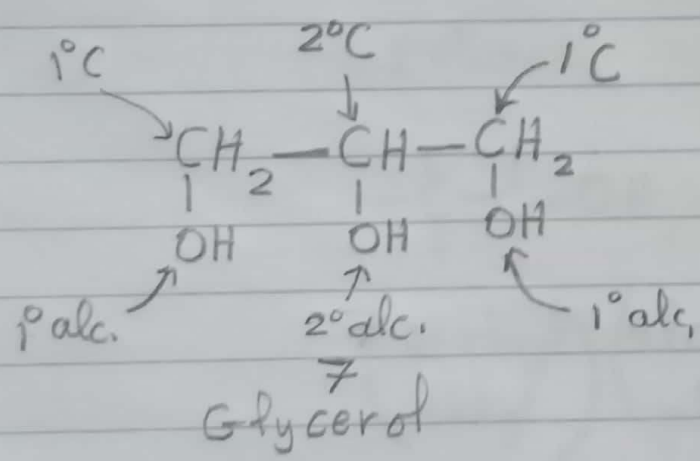 1°C 2°C 1°C
CH2 — CH — CH2
OH OH OH
1° alc. 2° alc. 1° alc,
7
Glycerol